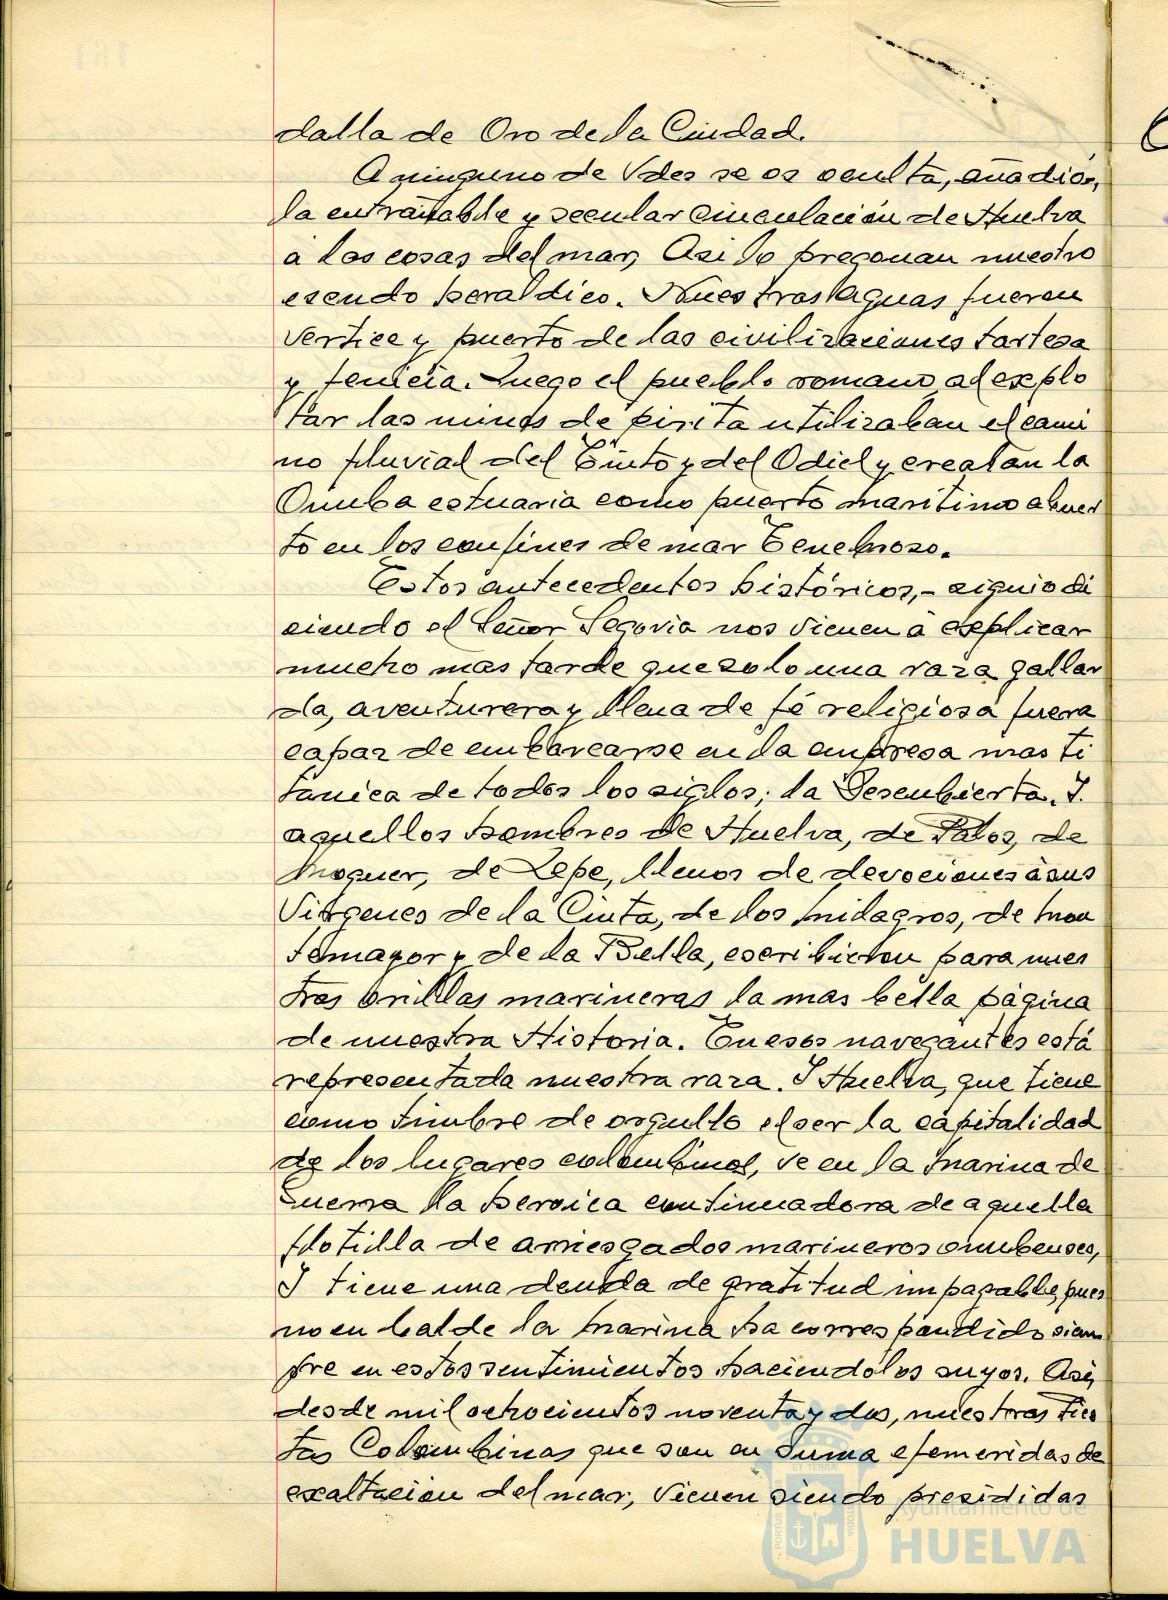 dalla de Oro de la Ciudad.
A ninguno de Vdes se os oculta, añadió,
la entrañable y secular vinculación de Huelva
a las cosas del mar, Asi lo pregonan nuestro
escudo heraldico. Nuestras aguas fueron
vertice y puerto de las civilizaciones tartesa
y fenicia. Luego el pueblo romano al explo
tar las minas de pirita utilizaban el cami
no fluvial del Tinto y del Odiel y crean la
Onuba estuaria como puerto maritimo abier
to en los confines de mar Tenebroso.
Estos antecedentes históricos,- siguio di
ciendo el Señor Segovia nos vienen a explicar
mucho mas tarde que solo una raza gallar
da, aventurera y llena de fé religiosa fuera
capaz de embarcarse en la empresa mas ti
tanica de todos los siglos; la Descubierta. Y
aquellos hombres de Huelva, de Palos, de
Moguer, de Lepe, llenos de devociones a sus
Virgenes de la Cinta, de los Milagros, de Mon
temayor y de la Bella, escribieron para nues
tras orillas marineras la mas bella página
de nuestra Historia. En esos navegantes está
representada nuestra raza. Y Huelva, que tiene
como timbre de orgullo el ser la capitalidad
de los lugares colombinos, ve en la Marina de
Guerra la heroica continuadora de aquella
flotilla de arriesgados marineros onubenses,
Y tiene una deuda de gratitud impagable, pues
no en balde la Marina ha correspondido siem
pre en estos sentimientos haciendolos suyos. Asi,
desde mil ochocientos noventa y dos, nuestras Fies
tas Colombinas que son en suma efemeridas de
exaltación del mar, vienen siendo presididas
Ayuntamiento de
HUELVA